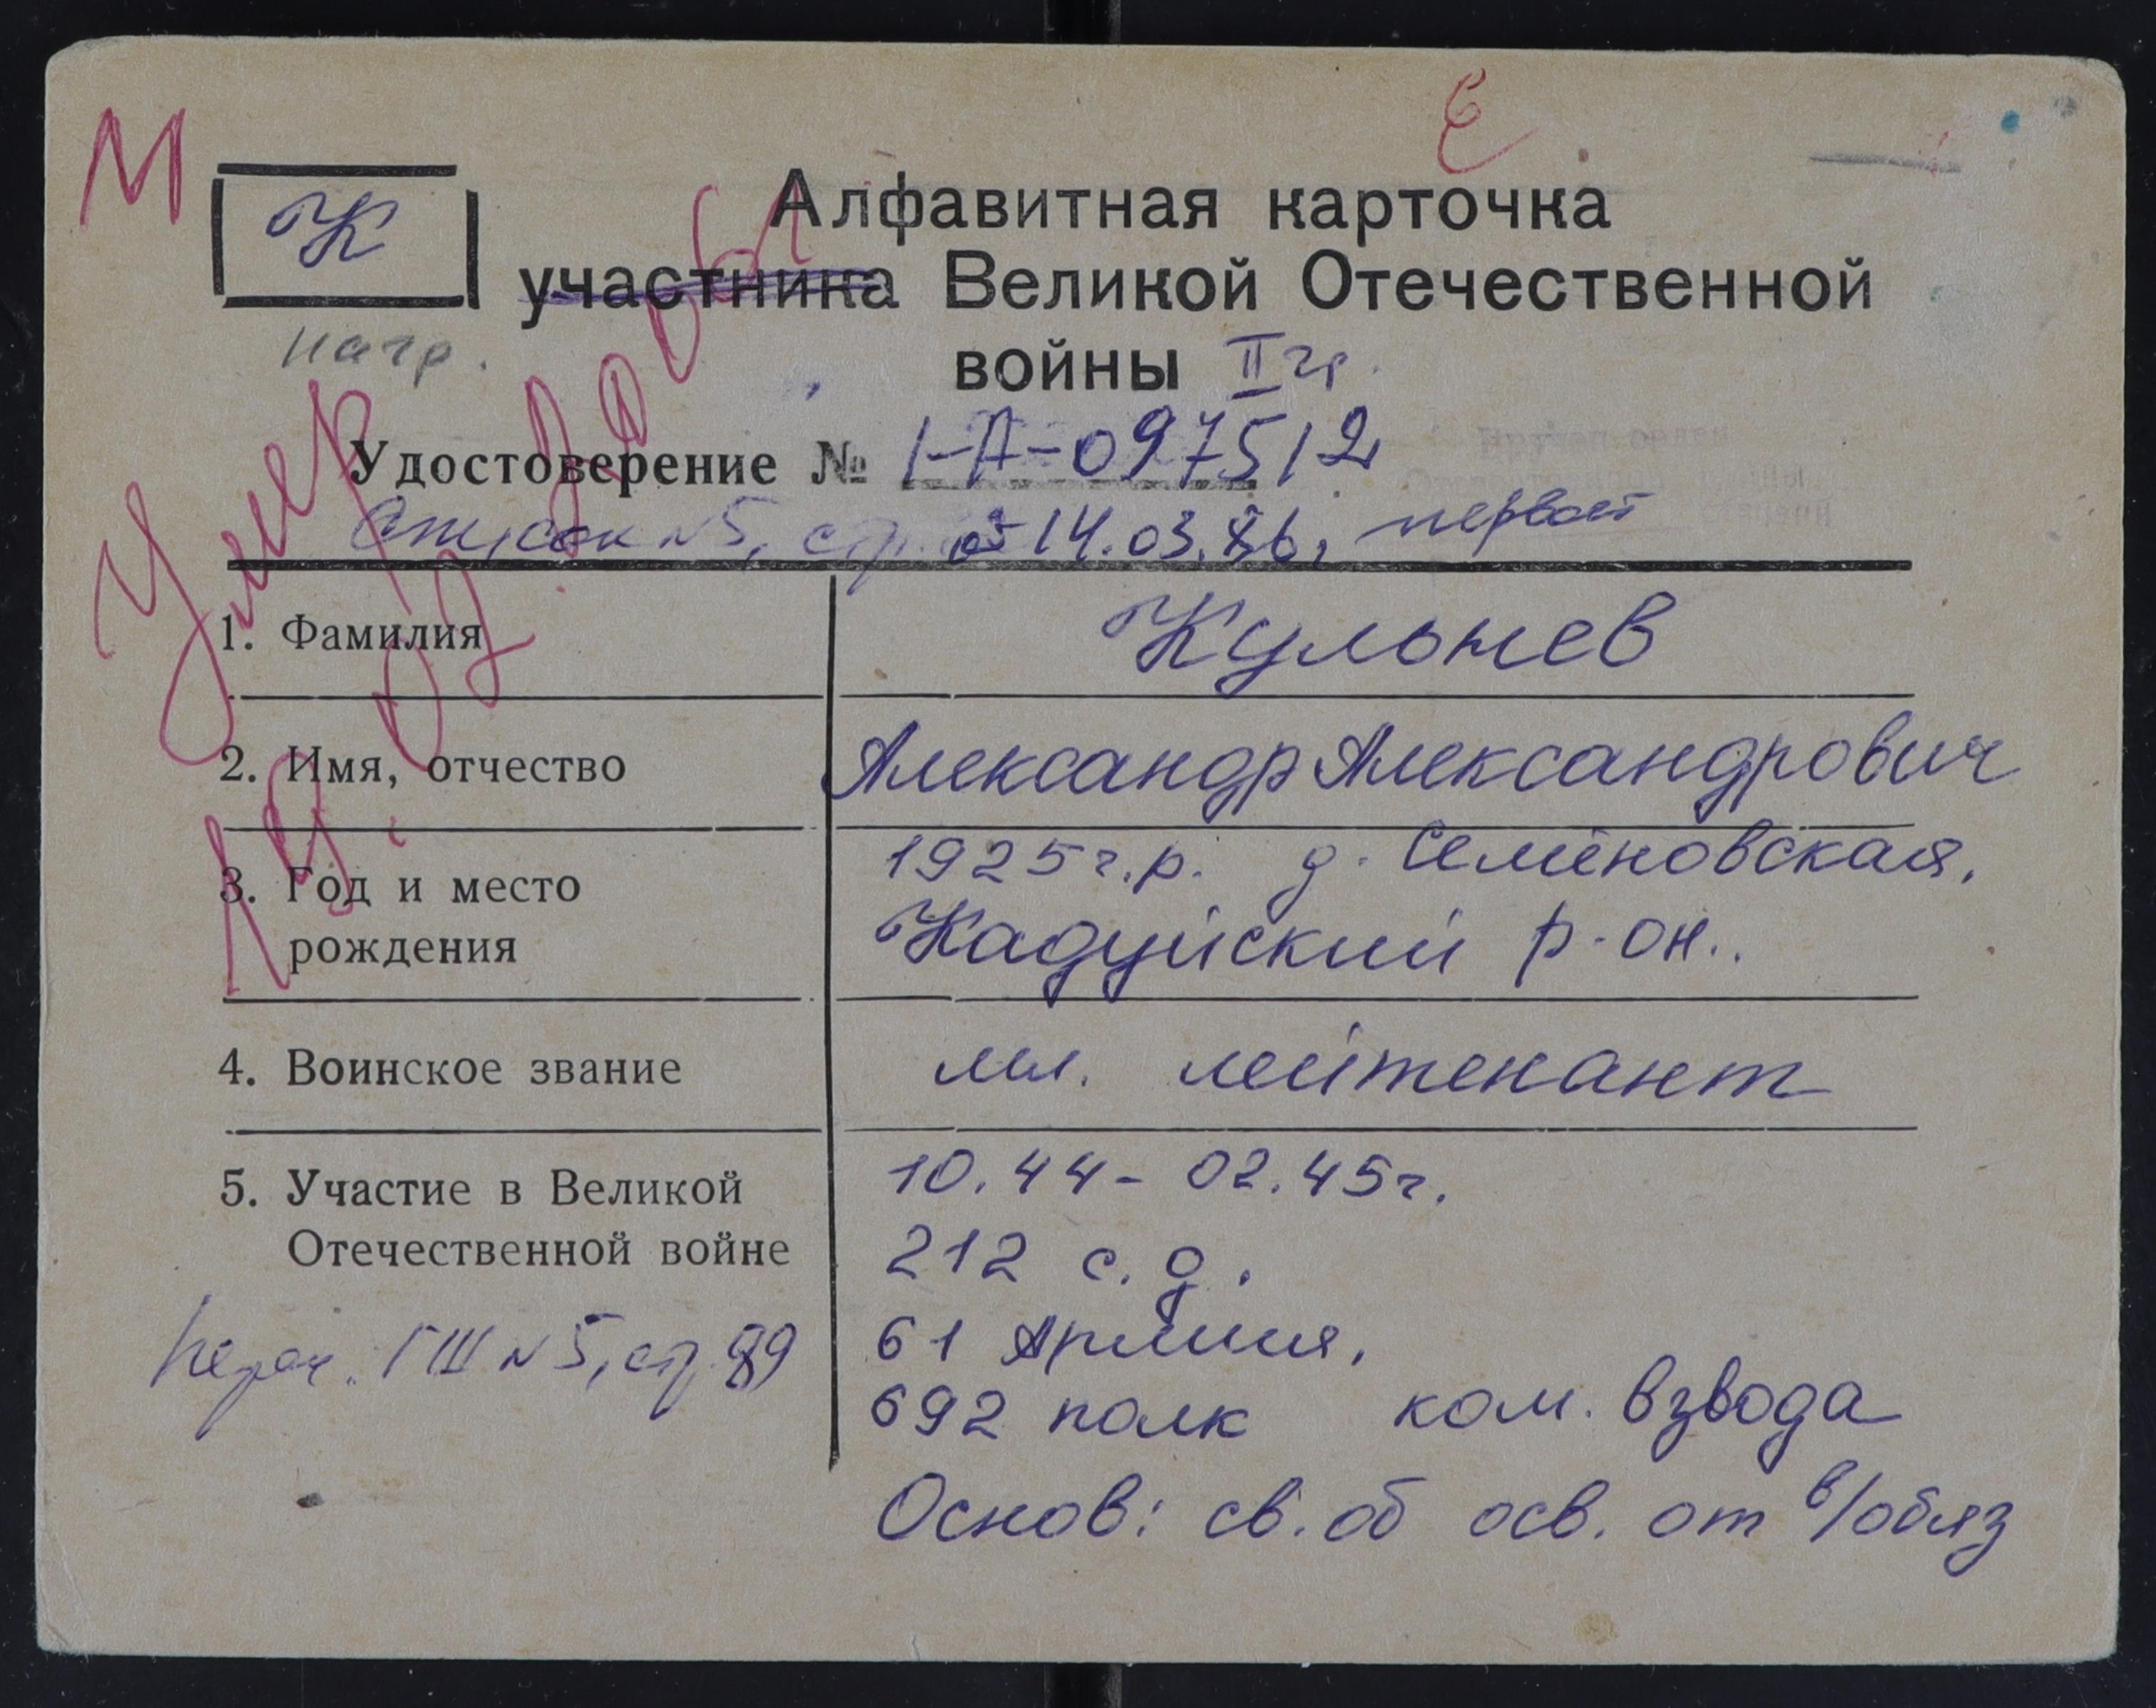 М
К
Алфавитная карточка
участника Великой Отечественной
войны II гр.
нагр.
Удостоверение № 1-А-097512
Список №5, от 14.03.86,
Умер
1. Фамилия Кульнев
2. Имя, отчество Александр Александрович
3. Год и место рождения 1925 г.р. д. Семёновская,
Кадуйский р-он..
4. Воинское звание мл. лейтенант
5. Участие в Великой Отечественной войне 10.44 - 02.45 г.
212 с.д.
61 Армия,
692 полк ком. взвода
ГШ №5, стр. 89
Основ: св. об осв. от в/обяз